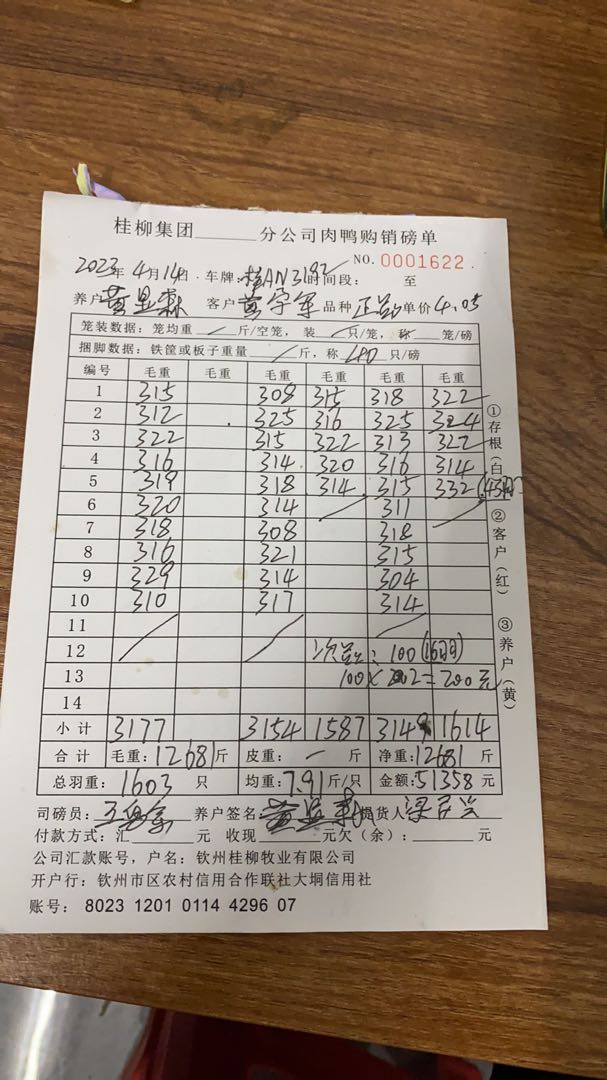 桂柳集团______分公司肉鸭购销磅单
NO. 0001622
2023年 4月 14日 车牌: 桂AN3192 时间段: 至
养户 客户 品种 正 单价 4.05
笼装数据: 笼均重 / 斤/空笼, 装 / 只/笼, 称 笼/磅
捆脚数据: 铁筐或板子重量 / 斤, 称 40 只/磅
编号 毛重 毛重 毛重 毛重 毛重 毛重
1 315 308 315 318 322
2 312 325 316 325 324
3 322 315 322 313 322
4 316 314 320 316 314
5 319 318 314 315 332 (43只)
6 320 314 311
7 318 308 318
8 316 321 315
9 329 314 304
10 310 317 314
11
12 次: 100 (16只)
13 100× 2=200元
14
小计 3177 3154 1587 3149 1614
合计 毛重: 12681 斤 皮重: — 斤 净重: 12681 斤
总羽重: 1603 只 均重: 7.91 斤/只 金额: 51358 元
司磅员: 养户签名 提货人
付款方式: 汇______元 收现______元欠(余): ______元
公司汇款账号, 户名: 钦州桂柳牧业有限公司
开户行: 钦州市区农村信用合作联社大垌信用社
账号: 8023 1201 0114 4296 07
①存根(白)
②客户(红)
③养户(黄)